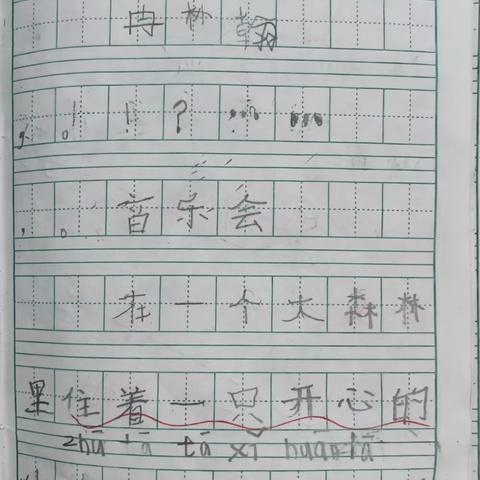 冉林翰
，。！！？……
，。音乐会
在一个大森林
里住着一只开心的
zhū tā tā xǐ huān tā